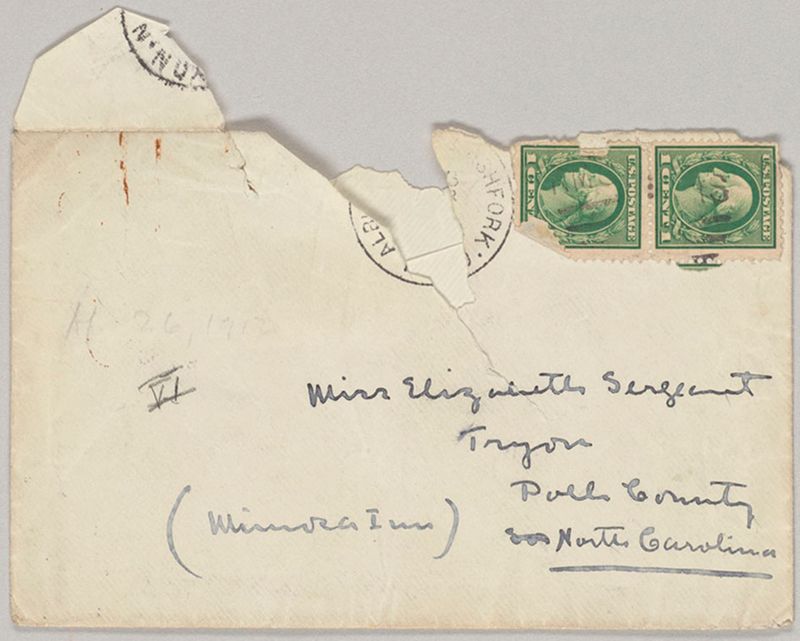 N.N
ALB SHFORK.
1 CENT U.S. POSTAGE 1 CENT U.S. POSTAGE
26, 191
VI
Miss Elizabeth Sergeant
Tryon
Polk County
(Mimosa Inn)
North Carolina